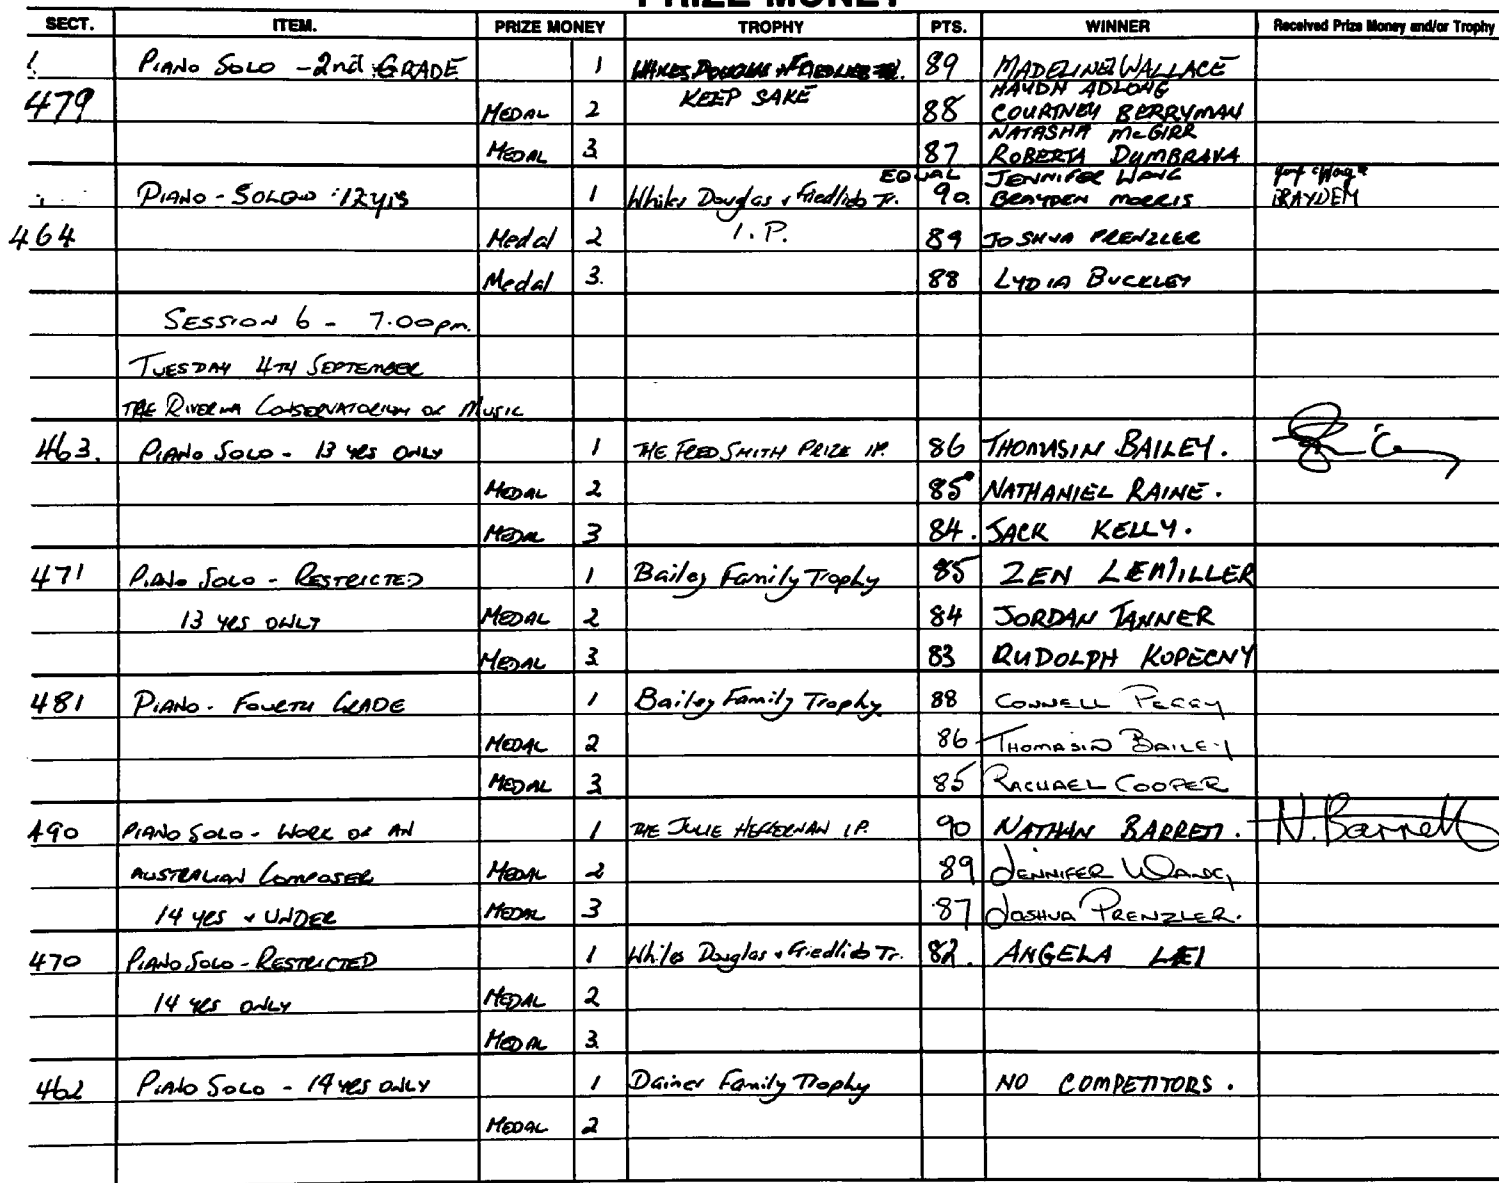 PRIZE MONEY
SECT. ITEM. PRIZE MONEY TROPHY PTS. WINNER Received Prize Money and/or Trophy
1. PIANO SOLO - 2nd GRADE 1 89 MADELINE WALLACE
KEEP SAKE HAYDN ADLONG
479 MEDAL 2 88 COURTNEY BERRYMAN
NATASHA McGIRR
MEDAL 3 87 ROBERTA DUMBRAVA
EQUAL JENNIFER WANG
PIANO - SOLO 12 yrs 1 Whiles Douglas & Friedlieb Tr. 90. BRAYDEN MORRIS BRAYDEN
464 Medal 2 I.P. 89 JOSHUA PRENZLER
Medal 3. 88 LYDIA BUCKLEY
SESSION 6 - 7.00pm.
TUESDAY 4TH SEPTEMBER
THE RIVERINA CONSERVATORIUM OF MUSIC
463. PIANO SOLO - 13 YRS ONLY 1 THE FRED SMITH PRIZE I.P. 86 THOMASIN BAILEY.
MEDAL 2 85 NATHANIEL RAINE.
MEDAL 3 84. JACK KELLY.
471 PIANO SOLO - RESTRICTED 1 Bailey Family Trophy 85 ZEN LEMILLER
13 YRS ONLY MEDAL 2 84 JORDAN TANNER
MEDAL 3 83 RUDOLPH KOPECNY
481 PIANO - FOURTH GRADE 1 Bailey Family Trophy 88 CONNELL PEGGY
MEDAL 2 86 THOMASIN BAILEY
MEDAL 3 85 RACHAEL COOPER
490 PIANO SOLO - WORK OF AN 1 THE JULIE HEFFERNAN I.P. 90 NATHAN BARRETT. N. Barrett
AUSTRALIAN COMPOSER MEDAL 2 89 JENNIFER WANG
14 YRS & UNDER MEDAL 3 87 JOSHUA PRENZLER.
470 PIANO SOLO - RESTRICTED 1 Whiles Douglas & Friedlieb Tr. 82. ANGELA LEI
14 YRS ONLY MEDAL 2
MEDAL 3
462 PIANO SOLO - 14 YRS ONLY 1 Dainer Family Trophy NO COMPETITORS.
MEDAL 2